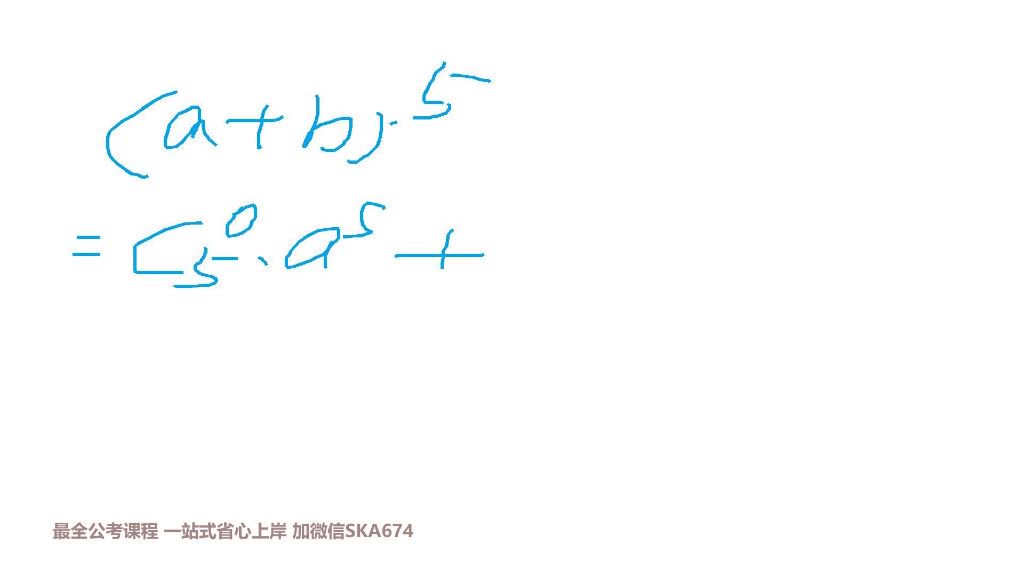 (a+b)^5
= C_5^0 · a^5 +
最全公考课程 一站式省心上岸 加微信SKA674